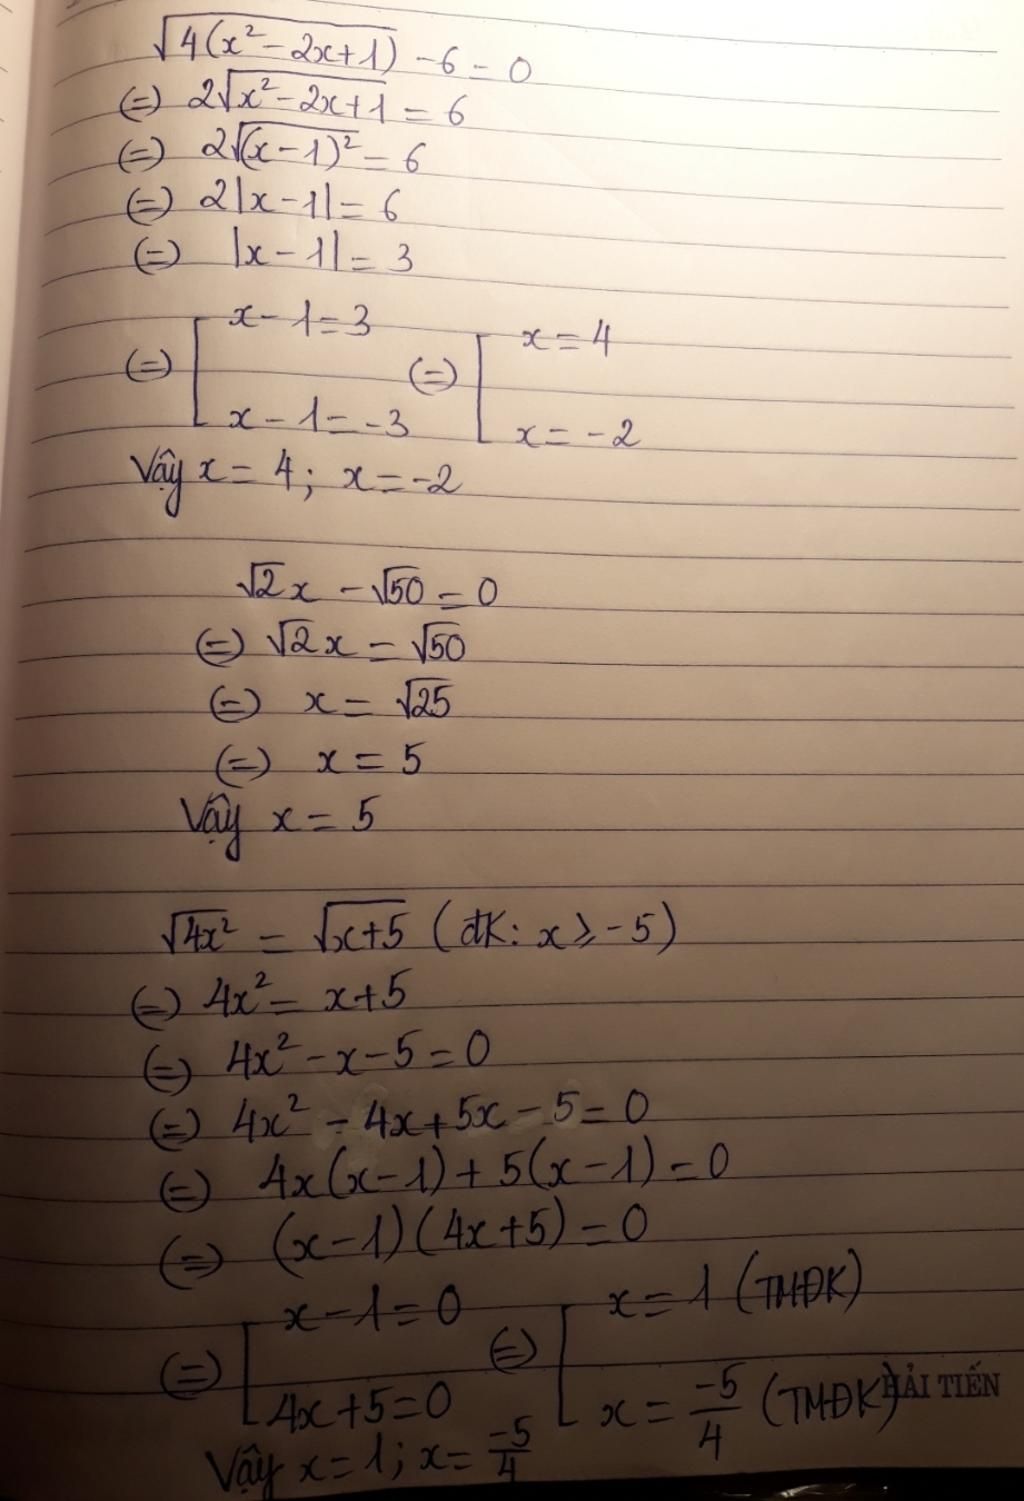 √4(x² − 2x + 1) − 6 = 0
(=) 2√x² − 2x + 1 = 6
(=) 2√(x − 1)² = 6
(=) 2|x − 1| = 6
(=) |x − 1| = 3
(=) [ x − 1 = 3 (=) [ x = 4
x − 1 = −3 x = −2
Vậy x = 4; x = −2
√2x − √50 = 0
(=) √2x = √50
(=) x = √25
(=) x = 5
Vậy x = 5
√4x² = √x+5 (đK: x ⩾ −5)
(=) 4x² = x + 5
(=) 4x² − x − 5 = 0
(=) 4x² − 4x + 5x − 5 = 0
(=) 4x(x − 1) + 5(x − 1) = 0
(=) (x − 1)(4x + 5) = 0
(=) [ x − 1 = 0 (=) [ x = 1 (TMĐK)
4x + 5 = 0 x = −5/4 (TMĐK)
HẢI TIẾN
Vậy x = 1; x = −5/4